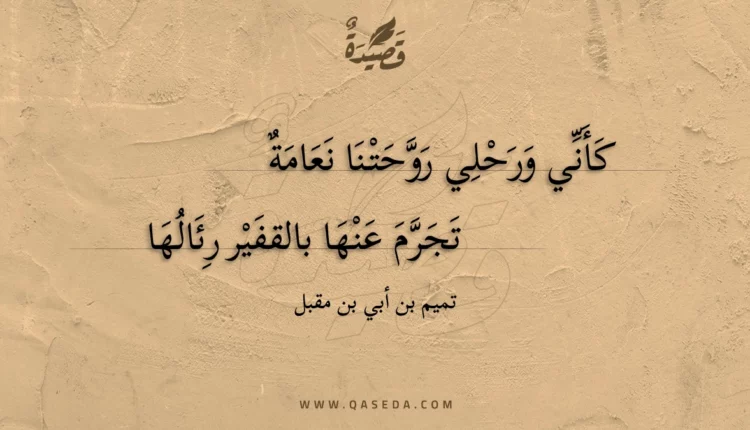 قَصِيْدَةٌ
كَأَنِّي وَرَحْلِي رَوَّحَتْنَا نَعَامَةٌ
تَجَرَّمَ عَنْهَا بالقفَيْر رِئَالُهَا
تميم بن أبي بن مقبل
WWW.QASEDA.COM